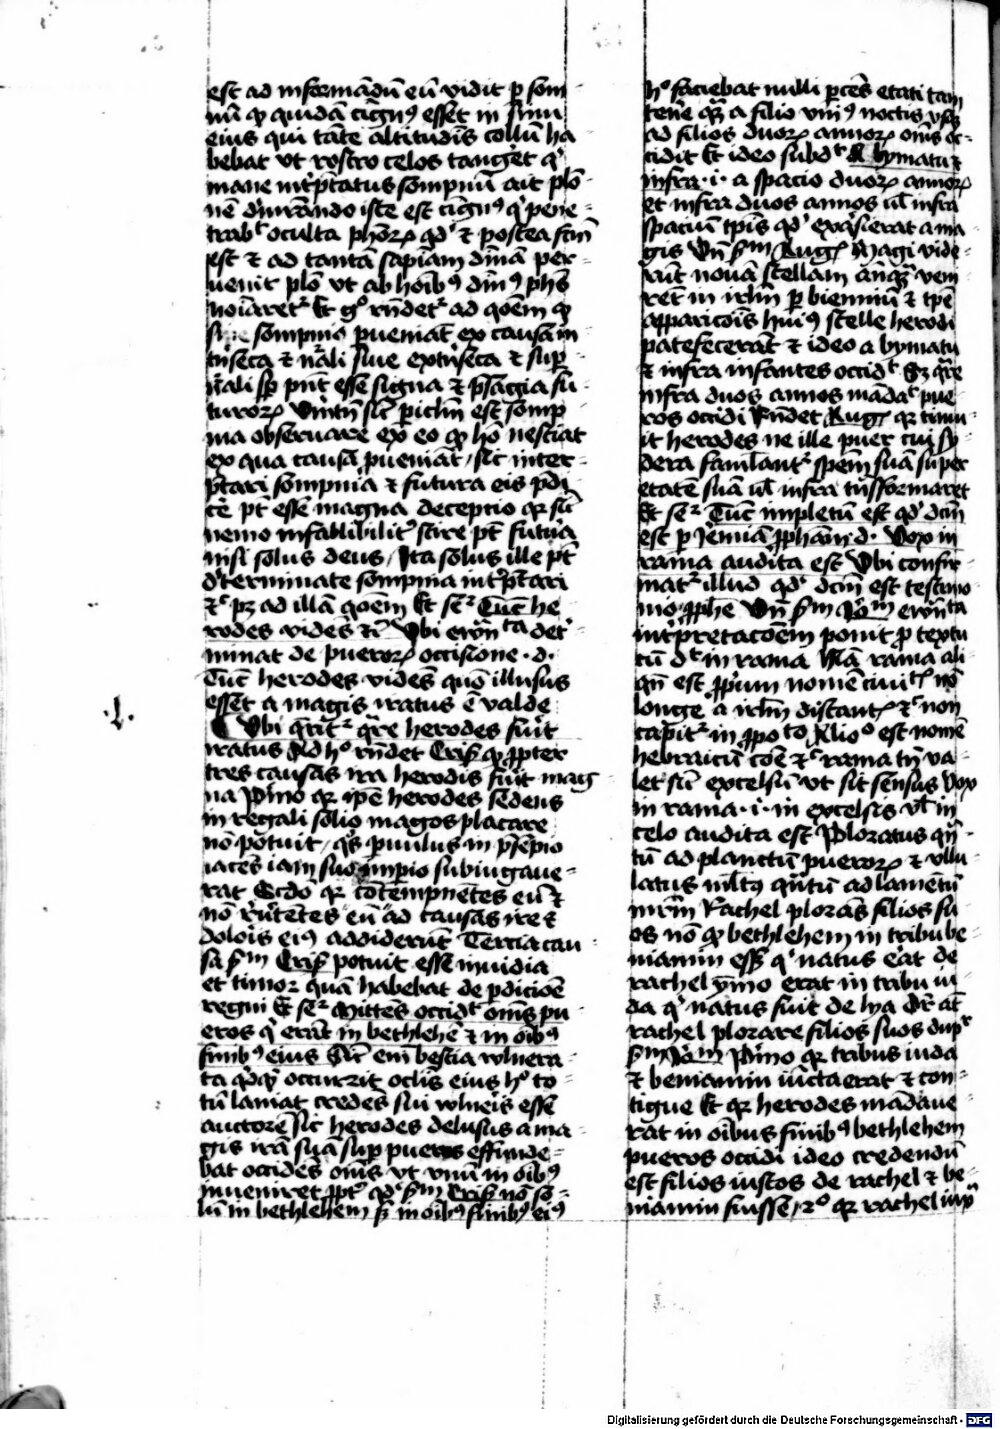 est ad informādū eū vidit ꝑ som
nū ꝙ quidā cignꝰ esset in sinu
eius qui tāte altitudīs collū ha
bebat vt rostro celos tangeret q̇
mane int̄p̄tatus sompniū ait plō
nē dmrāndo iste est cignꝰ q̇ pene
trabit oculta phōꝝ qd̓ ⁊ postea fcm̄
est ⁊ ad tantā sapiām dīnā per
uenit plō vt ab hoībꝰ diuinꝰ phs̄
noiāret᷑ Et gͦ rn̄det᷑ ad qōem ꝙ
siue sompnio ꝓueniāt ex causa in
tⁱnseca ⁊ nāli siue extⁱnseca ⁊ sup
nāli sꝑ pn̄t esse signa ⁊ p̄sagia fu
turoꝝ Vn̄tn̄ sic̄ ꝑiclm̄ est somp
nia obseruare ex eo ꝙ hō nesciat
ex qua causa ꝓueniāt sic inter
p̄tari sompnia ⁊ futura eis p̄di
cē pt̄ esse magna deceptio qr sic̄
nemo infallibilit᷑ scire pt̄ futura
nisi solus deus Ita solus ille pt̄
dterminate sompnia int̄p̄tari
⁊c̄ pꝫ ad illā qōem Et seꝛ᷑ Tūc he
rodes vides ⁊c̄ Vbi ewn̄ta det̓
minat de pueroꝝ occisione .d.
Tūc herodes vidēs quō illusus
esset a magis iratus ē valde
.l.
Vbi qrit᷑ qre herodes fuit
iratus Ad hͦ rn̄det Crisͦ ꝙ ꝓpter
tres causas ira herodis fuit mag
na Pⁱmo qr ip̄e herodes sedens
in regali solio magos placare
nō potuit q̇s ꝑuulus in p̄sepio
iacēs iam suo imperio subiugaue
rat Scdo qr cōtempnētes eū ⁊
nō rūtētes eū ad causas ire ⁊
dolōis eiꝰ addiderūt Tercia cau
sa fm̄ Crisͦ potuit esse inuidia
et timor quā habebat de ꝑdicioē
regni Et seꝛ᷑ Mittēs occidⁱt om̄s pu
eros q̇ erāt in bethlehē ⁊ in oībꝰ
finibꝰ eius Sic̄ eni bestia vulnera
ta qdq̇d occurrit oclīs eius hͦ to
tū laniat credēs sui vulnēis esse
auctorē sic herodes delusus a ma
gis irā suā suꝑ pueros effunde
bat occidēs om̄s vt vnū in oībꝰ
inueniret ꝓptͦ qd̓ fm̄ Crisͦ nō so
lū in bethlehem sꝫ in oībꝰ finibꝰ eiꝰ
hͦ faciebat nulli ꝑcēs etati tam
tenē qꝫ a filio vniꝰ noctis vsqꝫ
ad filios duoꝝ annoꝝ om̄s oc
cidit Et ideo subdᵗ A bymatu ⁊
infra .i. a spacio duoꝝ annoꝝ
et infra duos annos vl̄ infra
spaciū tp̄is qd̓ exqⁱsierat a ma
gis Vn̄ fm̄ Augꝰ Magi vide
rūt nouā stellam an̄qꝫ veni
rēt in irlm̄ ꝑ bienniū ⁊ tp̄e
apparicōis huiꝰ stelle herodi
patefecerāt ⁊ ideo a bymatu
⁊ infra infantes occidᵗ Sꝫ qre
infra duos annos mādaᵗ pue
ros occidi Rn̄det Augꝰ qr timu
it herodes ne ille puer cui sy
dera famlant᷑ spēm suā super
etatē suā vl̄ infra trāsformaret
Et seꝛ᷑ Tūc impletū est qd̓ dcm̄
est ꝑ Jeremiā ꝓphām .d. Vox in
rama audita est Vbi confir
mat᷑ illud qd̓ dcm̄ est testimo
nio ꝓphē Vn̄ fm̄ Jōm ewn̄ta
int̄pretacōem ponit ꝓ textu
cū dᵗ in rama Nā rama ali
qn̄ est ꝓpⁱum nomē ciuiᵗˢ nō
longe a irlm̄ distantꝭ ⁊c̄ non
capit᷑ in ꝓpoᵗᵒ Alioͦ est nomē
hebraicū cōe ⁊c̄ rama tm̄ va
let sic̄ excelsū vt sit sensus Vox
in rama .i. in excelsis vl̄ in
celo audita est Ploratus qn̄
tū ad planctū pueroꝝ ⁊ vllu
latus ml̄tꝰ qn̄tū ad lamētū
mr̄m Rachel plorās filios su
os nō ꝙ bethlehem in tribu be
niamin esset q̇ natus eāt de
rachel ymo erat in tribu iu
da q̇ natus fuit de lya Dr̄ at̄
rachel plorare filios suos dupᵗ
fm̄ Jōm Pⁱmo qr tribus iuda
⁊ beniamin iūcta erat ⁊ con
tigue Et qr herodes mādaue
rat in oībus finibꝰ bethlehem
pueros occidi ideo credendū
est filios iustos de rachel ⁊ be
niamin fuisse 2ͦ qr rachel iuxᵃ
Digitalisierung gefördert durch die Deutsche Forschungsgemeinschaft - DFG